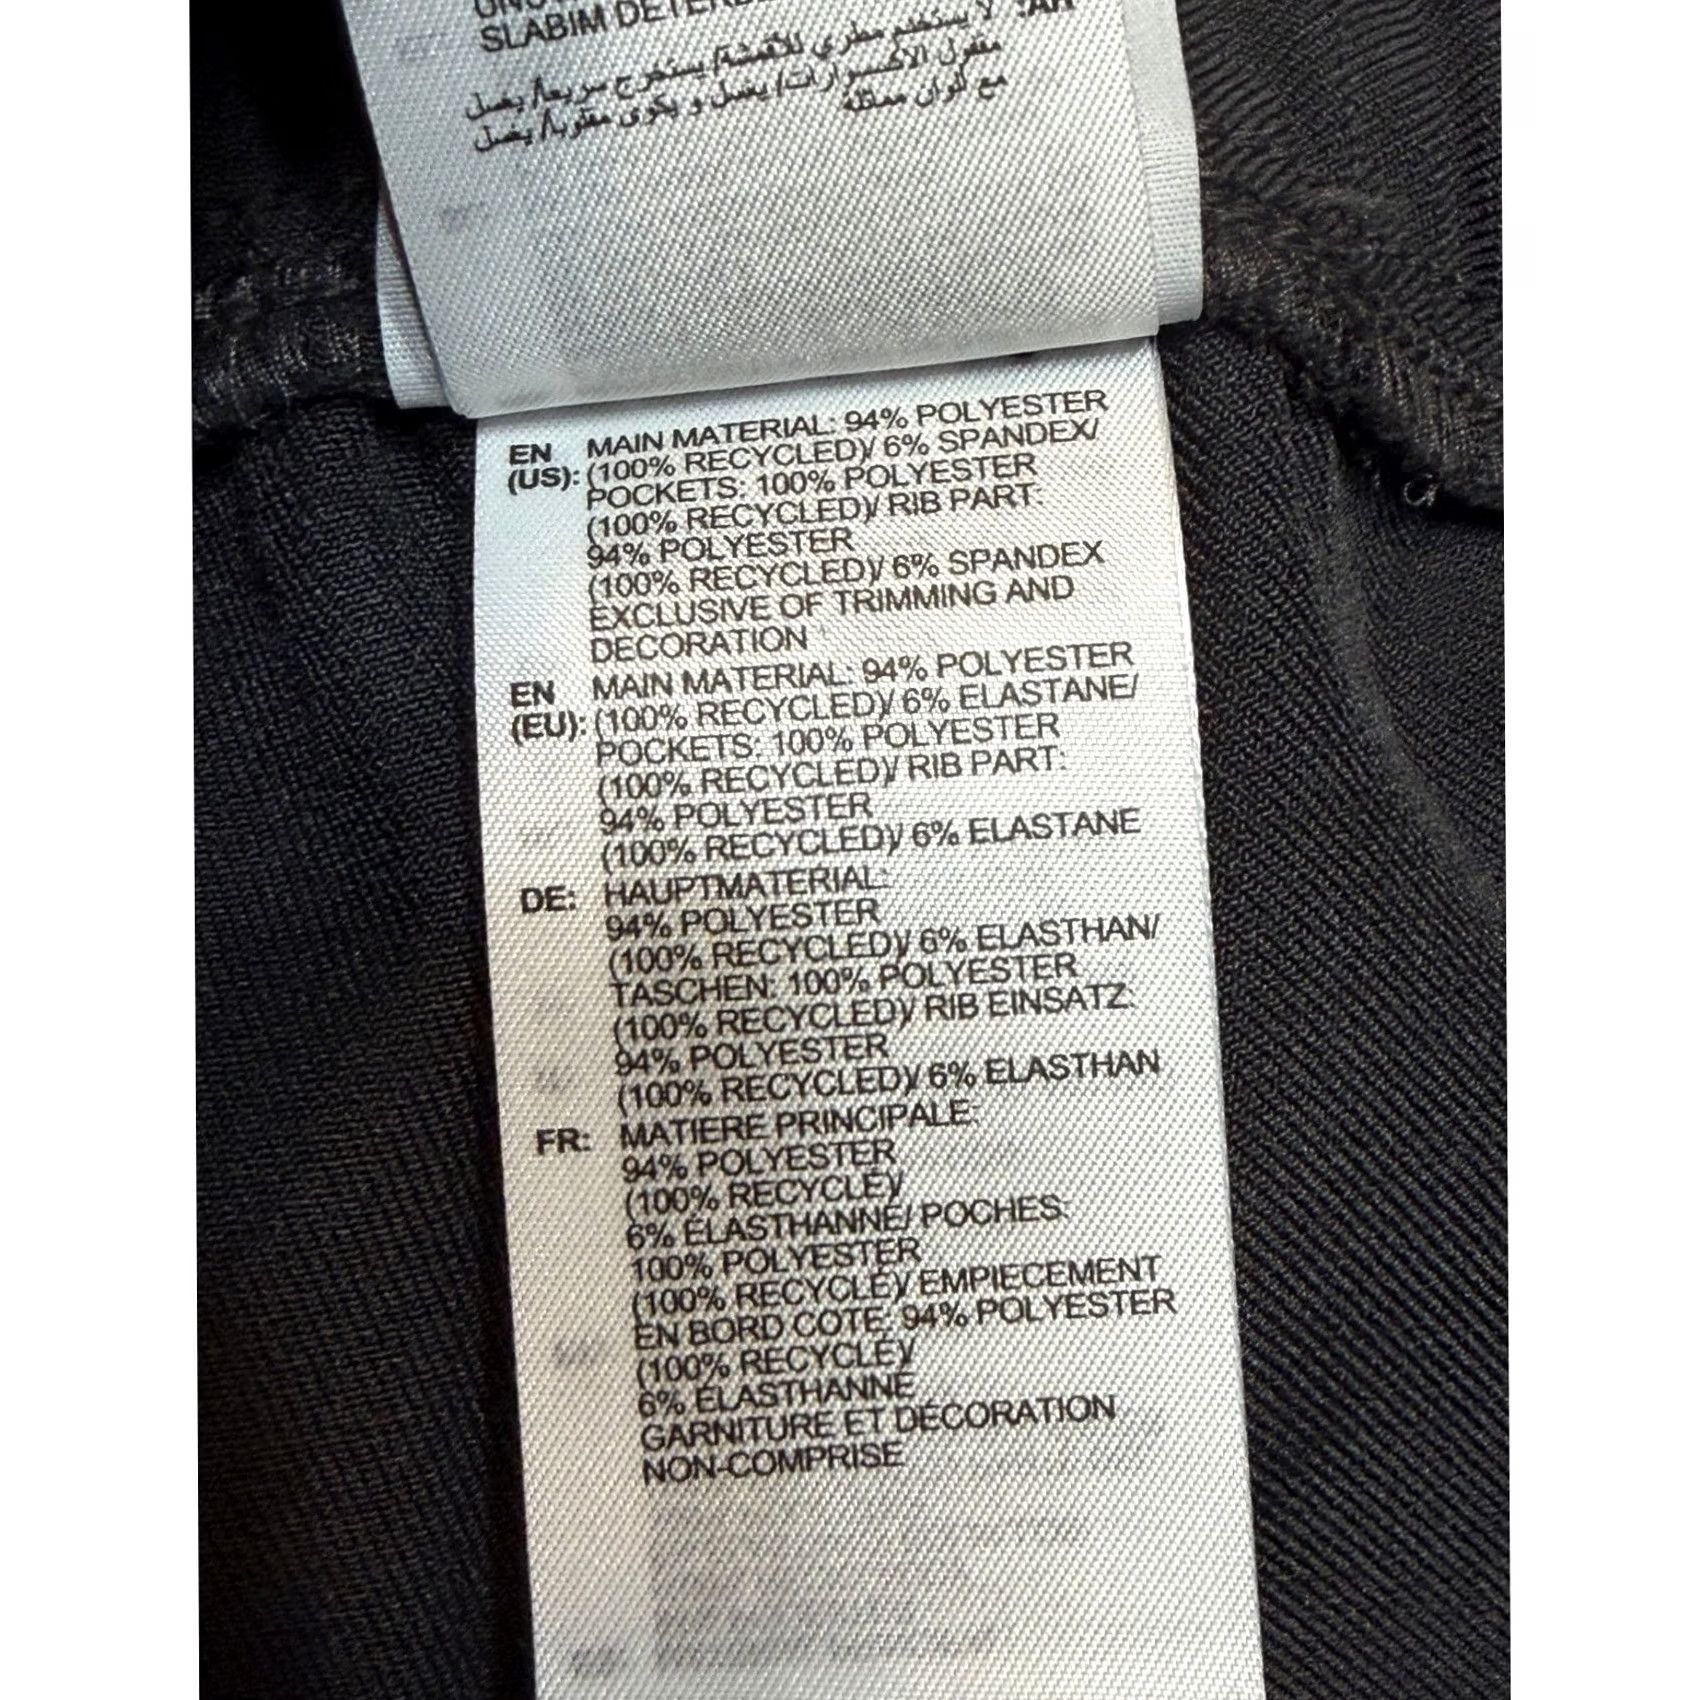 SLABIM
AR: لا يستخدم مطري للأقمشة/ يستخرج سريعا/ يغسل
مقفول الاكسسوارات/ يغسل و يكوى مقلوبا/ يغسل
مع ألوان مماثلة
EN (US): MAIN MATERIAL: 94% POLYESTER
(100% RECYCLED)/ 6% SPANDEX/
POCKETS: 100% POLYESTER
(100% RECYCLED)/ RIB PART:
94% POLYESTER
(100% RECYCLED)/ 6% SPANDEX
EXCLUSIVE OF TRIMMING AND
DECORATION
EN (EU): MAIN MATERIAL: 94% POLYESTER
(100% RECYCLED)/ 6% ELASTANE/
POCKETS: 100% POLYESTER
(100% RECYCLED)/ RIB PART:
94% POLYESTER
(100% RECYCLED)/ 6% ELASTANE
DE: HAUPTMATERIAL:
94% POLYESTER
(100% RECYCLED)/ 6% ELASTHAN/
TASCHEN: 100% POLYESTER
(100% RECYCLED)/ RIB EINSATZ:
94% POLYESTER
(100% RECYCLED)/ 6% ELASTHAN
FR: MATIERE PRINCIPALE:
94% POLYESTER
(100% RECYCLÉ)/
6% ÉLASTHANNE/ POCHES:
100% POLYESTER
(100% RECYCLÉ)/ EMPIECEMENT
EN BORD COTE: 94% POLYESTER
(100% RECYCLÉ)/
6% ÉLASTHANNE
GARNITURE ET DÉCORATION
NON-COMPRISE